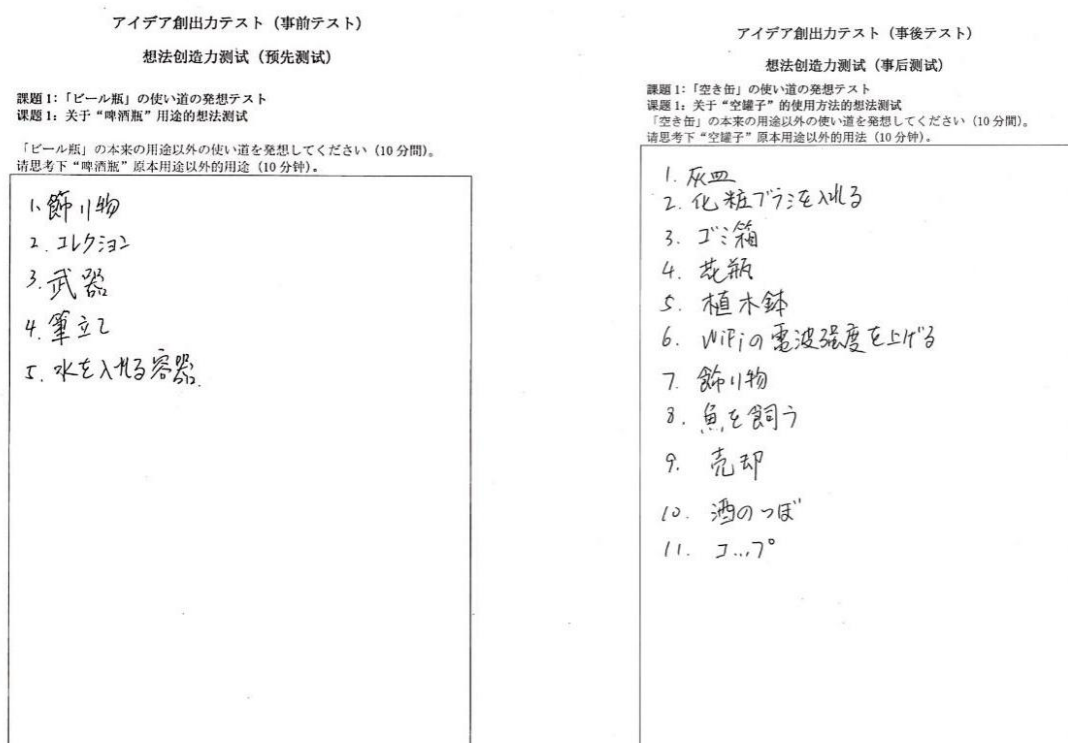 アイデア創出力テスト（事前テスト）
想法创造力测试（预先测试）
課題1:「ビール瓶」の使い道の発想テスト
课题1: 关于“啤酒瓶”用途的想法测试
「ビール瓶」の本来の用途以外の使い道を発想してください（10分間）。
请思考下“啤酒瓶”原本用途以外的用途（10分钟）。
1. 飾り物
2. コレクション
3. 武器
4. 筆立て
5. 水を入れる容器.
アイデア創出力テスト（事後テスト）
想法创造力测试（事后测试）
課題1:「空き缶」の使い道の発想テスト
课题1: 关于“空罐子”的使用方法的想法测试
「空き缶」の本来の用途以外の使い道を発想してください（10分間）。
请思考下“空罐子”原本用途以外的用法（10分钟）。
1. 灰皿
2. 化粧ブラシを入れる
3. ゴミ箱
4. 花瓶
5. 植木鉢
6. WiFiの電波強度を上げる
7. 飾り物
8. 魚を飼う
9. 売却
10. 酒のつぼ
11. コップ